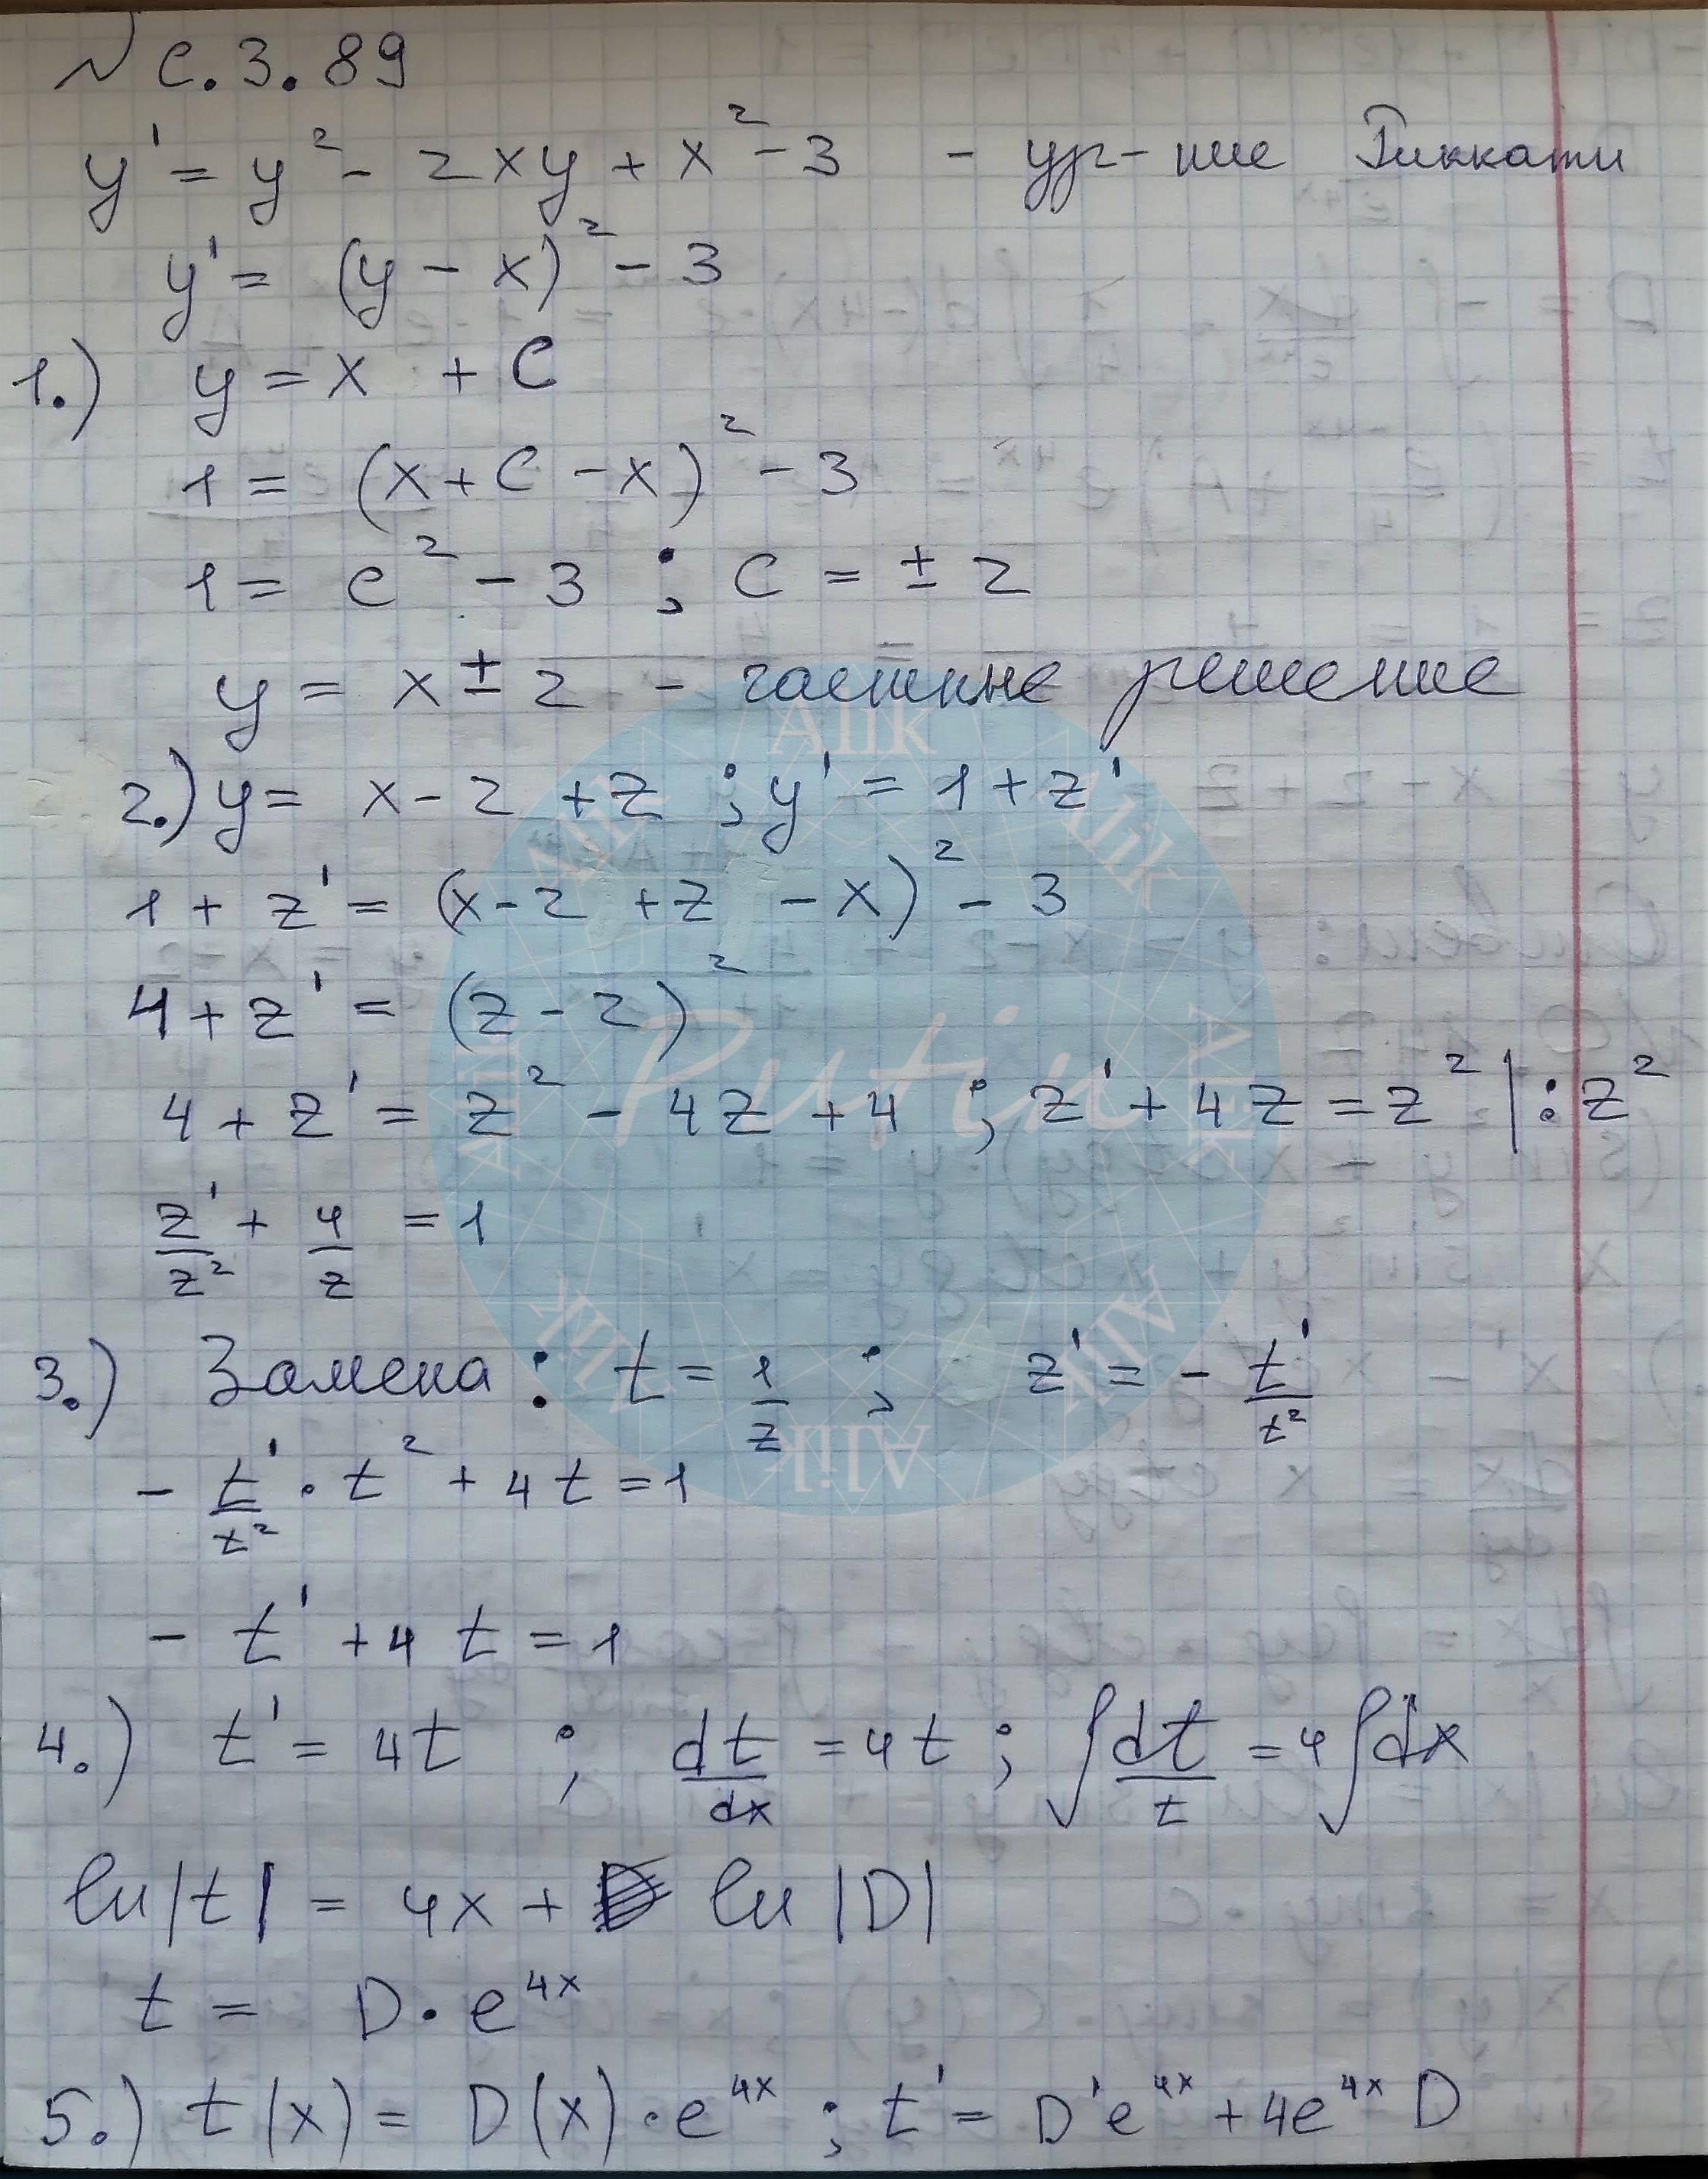 № С.3.89
y' = y² - 2xy + x² - 3 - ур-ние Риккати
y' = (y - x)² - 3
1.) y = x + C
1 = (x + C - x)² - 3
1 = C² - 3 ; C = ± 2
y = x ± 2 - частные решение
2.) y = x - 2 + z ; y' = 1 + z'
1 + z' = (x - 2 + z - x)² - 3
4 + z' = (z - 2)²
4 + z' = z² - 4z + 4 ; z' + 4z = z² | : z²
z'/z² + 4/z = 1
3.) Замена : t = 1/z ; z' = - t'/t²
- t'/t² · t² + 4t = 1
- t' + 4t = 1
4.) t' = 4t ; dt/dx = 4t ; ∫dt/t = 4∫dx
ln|t| = 4x + ln|D|
t = D · e^4x
5.) t(x) = D(x) · e^4x ; t' = D'e^4x + 4e^4x D
Alik
Alik
Alik
Alik
Alik
Alik
Alik
Alik
Putin